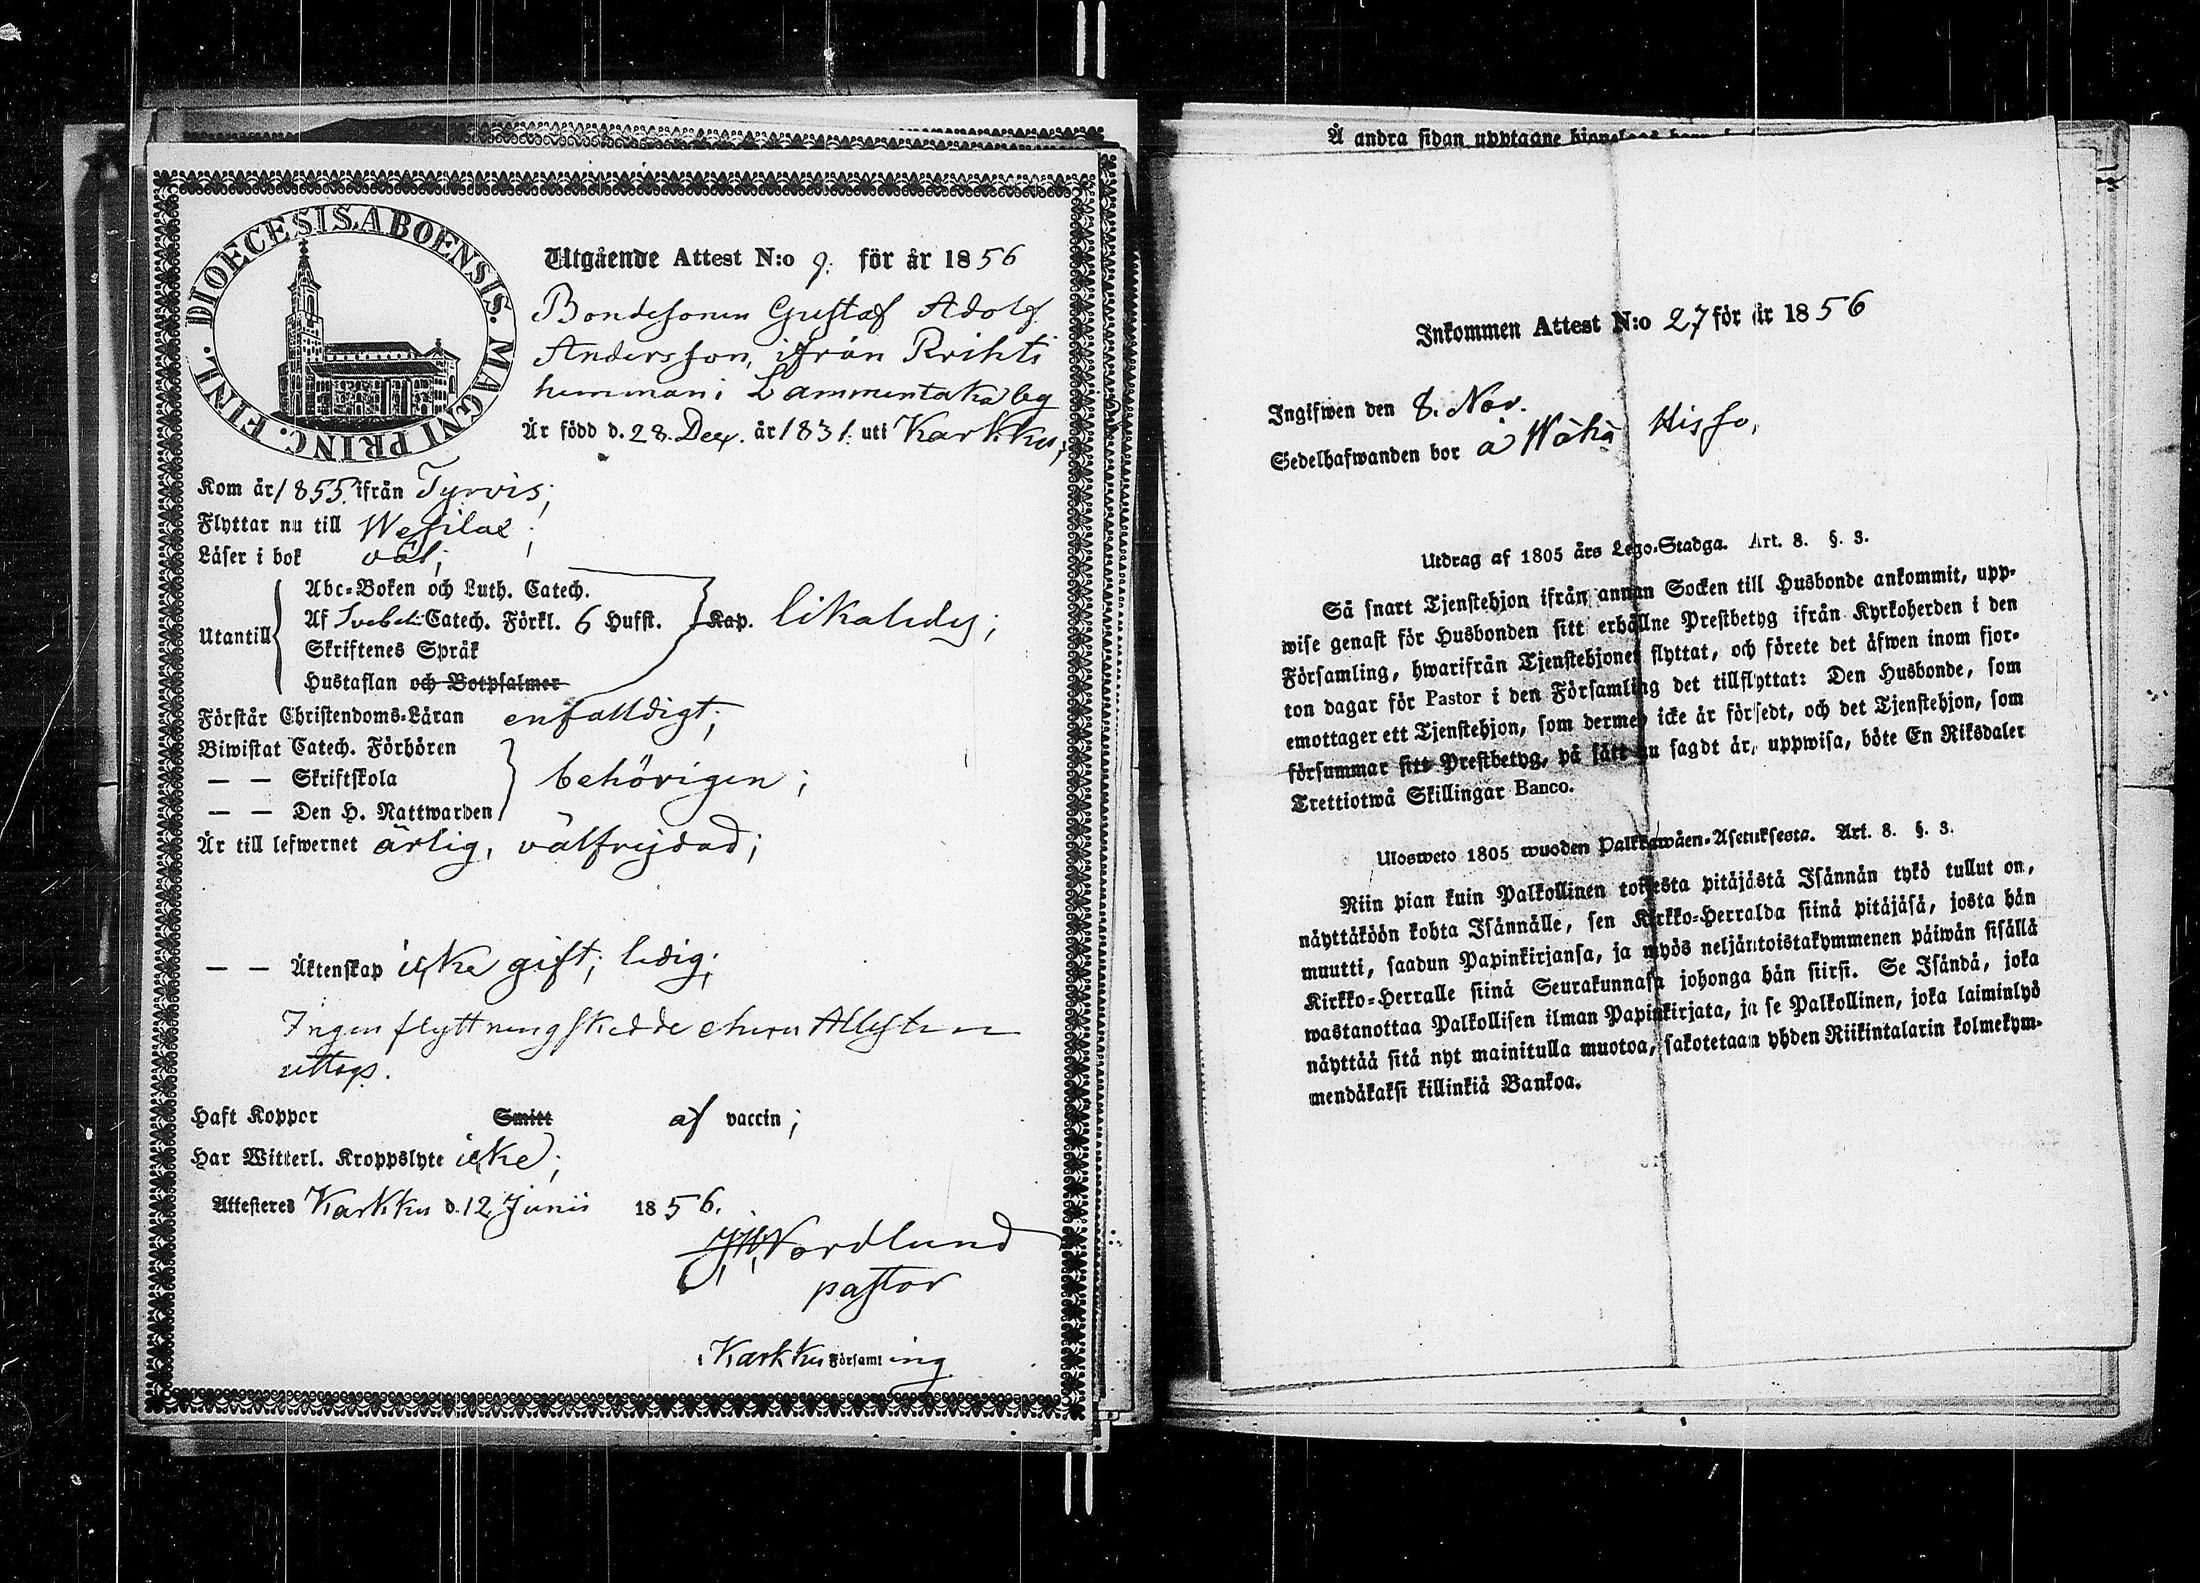 DIOECESIS. ABOENSIS. MAGNI PRINC. FINL.
Utgående Attest N:o 9. för år 1856
Bondesonen Gustaf Adolf
Andersson, ifrån Prihti
hemman i Lammentaka by
Är född d. 28. Dec. år 1831. uti Karkku;
Kom år 1855. ifrån Tyrvis;
Flyttar nu till Wesilax;
Läser i bok väl;
Abc-Boken och Luth. Catech.
Utantill Af Svebel: Catech. Förkl. 6 Hufst. Kap. likaledes;
Skriftenes Språk
Hustaflan och Botpsalmer
Förstår Christendoms-Läran enfalldigt;
Biwistat Catech. Förhören
— — Skriftskola behörigen;
— — Den H. Nattwarden
Är till lefwernet ärlig, välfrejdad;
— — Äktenskap icke gift; ledig;
Ingen flyttning skedde ehuru Attesten
uttogs.
Haft Koppor Smitt af vaccin;
Har Witterl. Kroppslyte icke;
Attesteras Karkku d. 12 Junii 1856.
Nordlund
pastor
i Karkku Församling
Å andra sidan upptagne
Inkommen Attest N:o 27 för år 1856
Ingifwen den 8. Nov.
Sedelhafwanden bor å Wähä Hisso,
Utdrag af 1805 års Lego-Stadga. Art. 8. §. 3.
Så snart Tjenstehjon ifrån annan Socken till Husbonde ankommit, upp-
wise genast för Husbonden sitt erhållne Prestbetyg ifrån Kyrkoherden i den
Församling, hwarifrån Tjenstehjonet flyttat, och förete det äfwen inom fjor-
ton dagar för Pastor i den Församling det tillflyttat: Den Husbonde, som
emottager ett Tjenstehjon, som dermed icke är försedt, och det Tjenstehjon, som
försummar sitt Prestbetyg, på sätt nu sagdt är, uppwisa, böte En Riksdaler
Trettiotwå Skillingar Banco.
Ulosweto 1805 wuoden Palkkawäen-Asetuksesta. Art. 8. §. 3.
Niin pian kuin Palkollinen toisesta pitäjästä Isännän tykö tullut on,
näyttäköön kohta Isännälle, sen Kirkko-Herralda siinä pitäjäsä, josta hän
muutti, saadun Papinkirjansa, ja myös neljäntoistakymmenen päiwän sisällä
Kirkko-Herralle siinä Seurakunnasa johonga hän siirsi. Se Isändä, joka
wastanottaa Palkollisen ilman Papinkirjata, ja se Palkollinen, joka laiminlyö
näyttää sitä nyt mainitulla muotoa, sakotetaan yhden Riikintalarin kolmekym-
mendäkaksi killinkiä Bankoa.